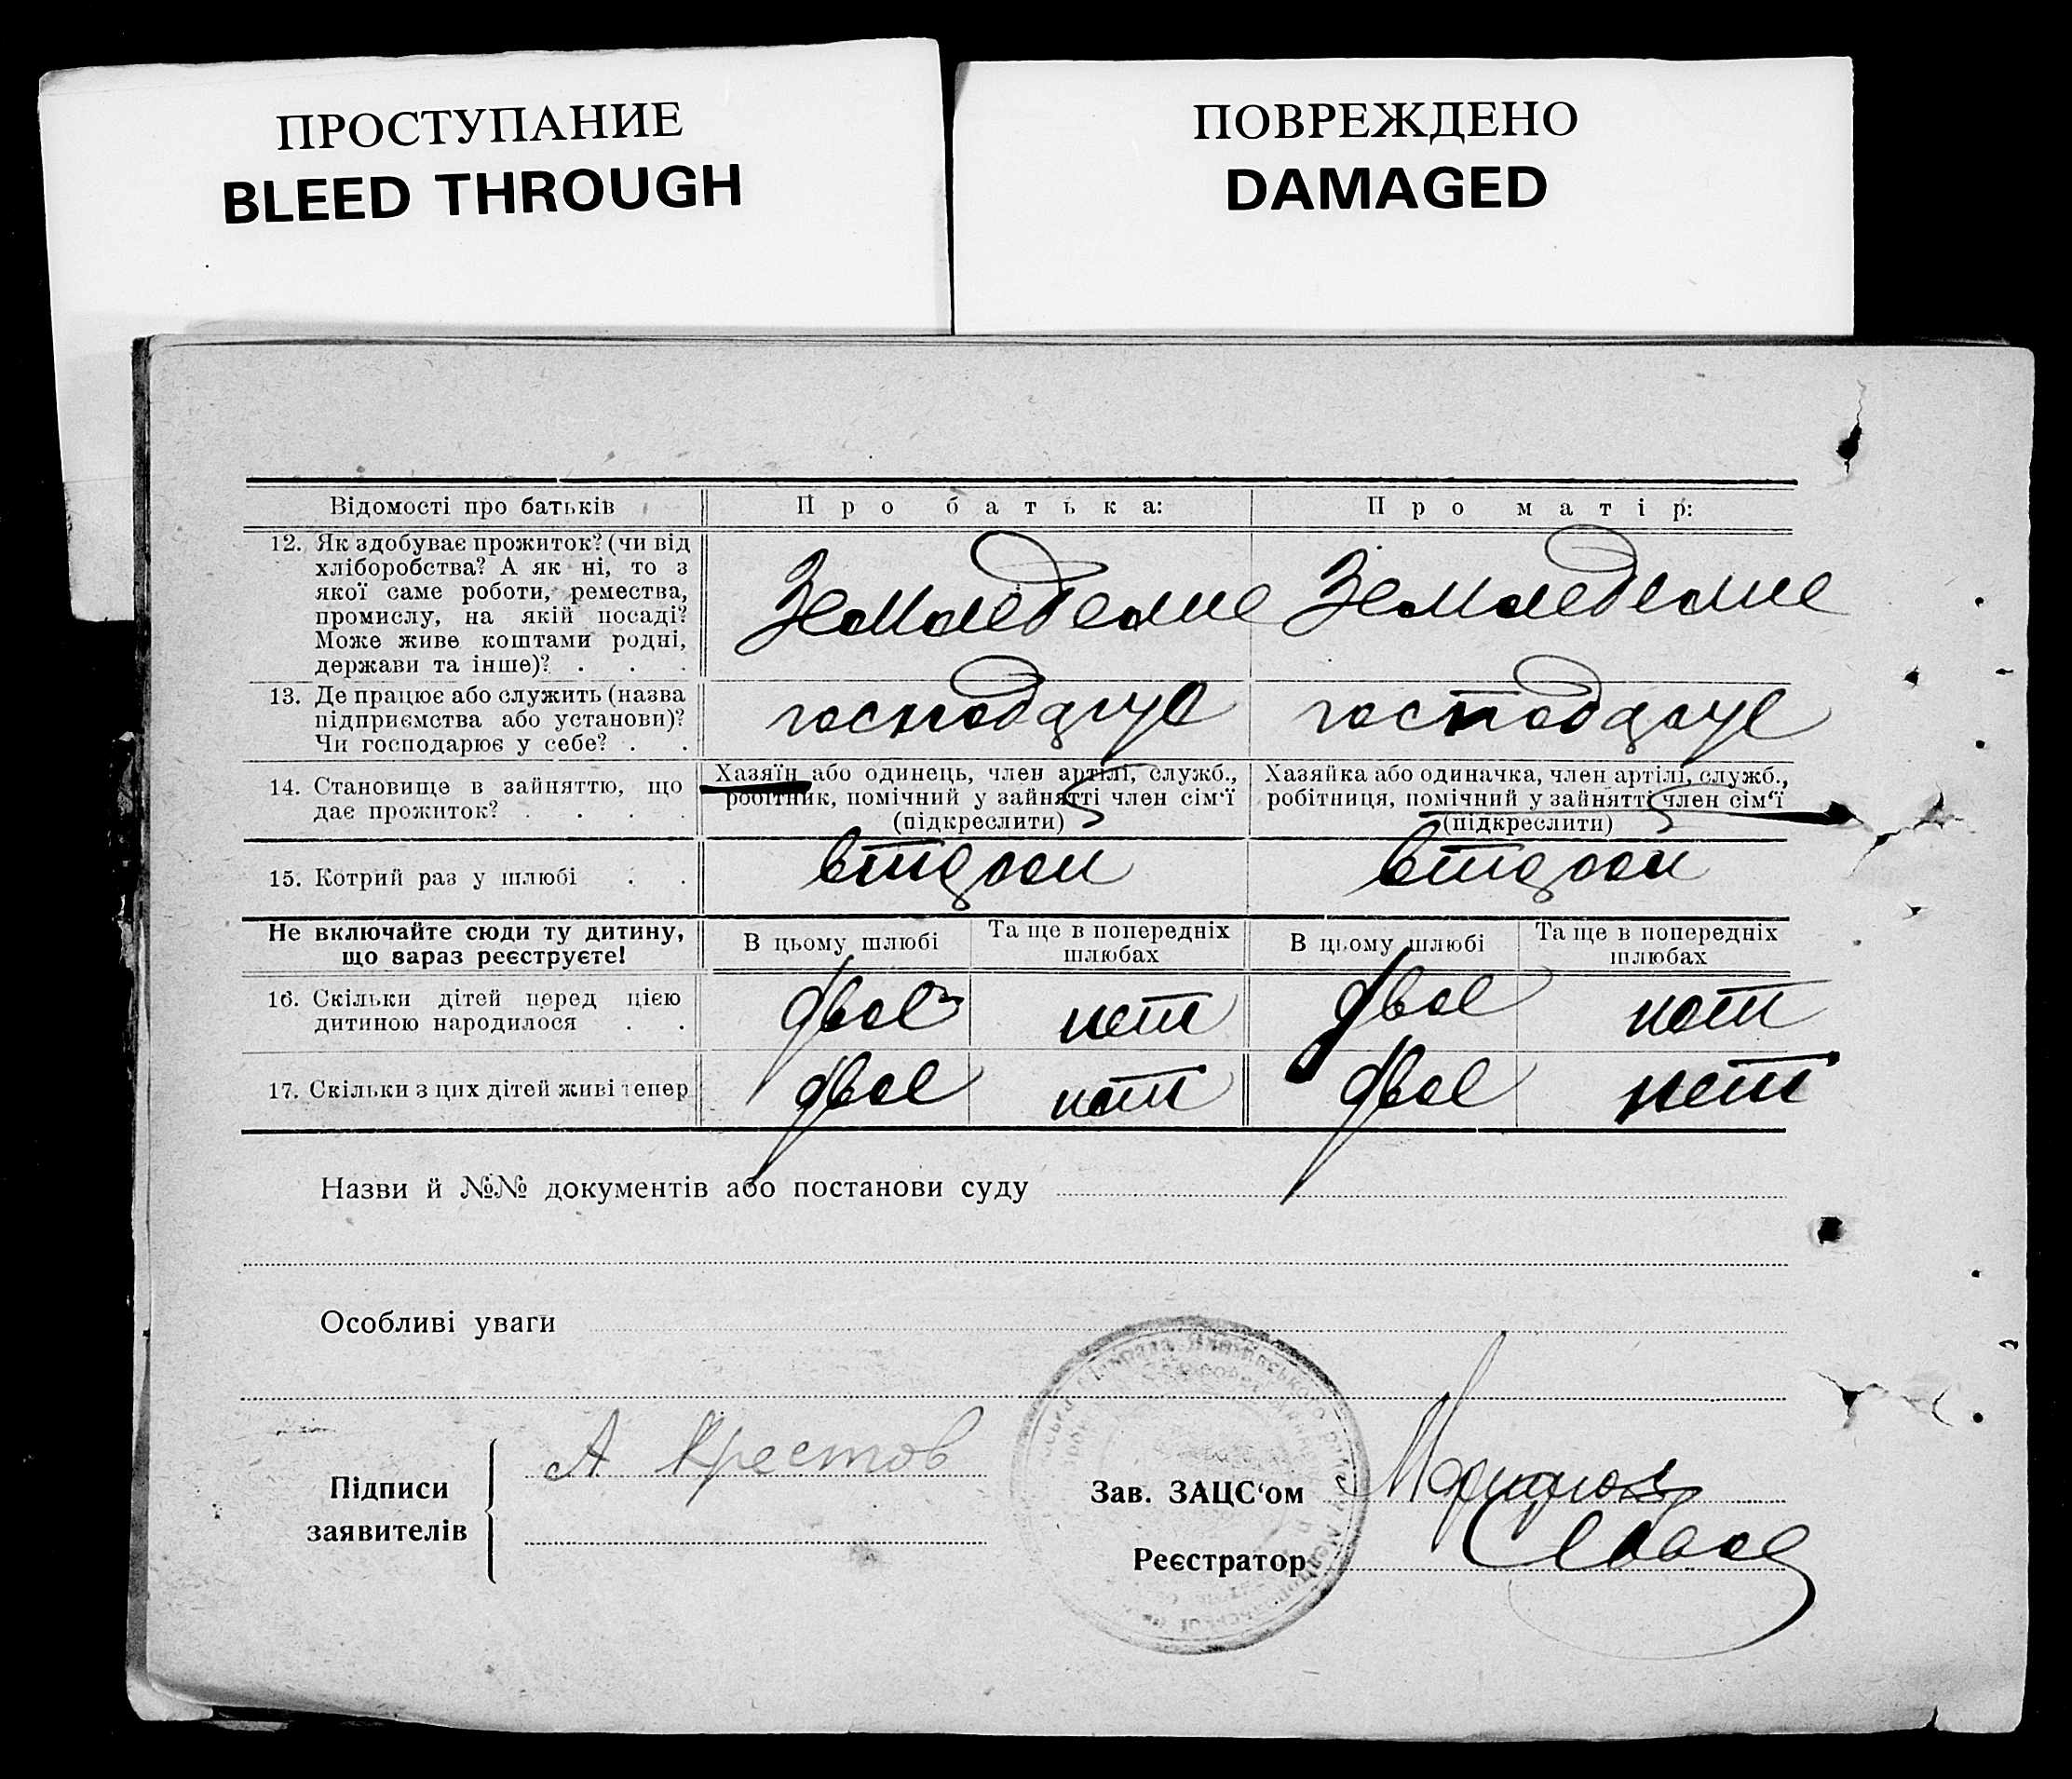 ПРОСТУПАНИЕ
BLEED THROUGH
ПОВРЕЖДЕНО
DAMAGED
Відомості про батьків
Про батька:
Про матір:
12. Як здобуває прожиток? (чи від
хліборобства? А як ні, то з
якої саме роботи, ремества,
промислу, на якій посаді?
Може живе коштами родні,
держави та інше)? . . .
Земледелие
Земледелие
13. Де працює або служить (назва
підприємства або установи)?
Чи господарює у себе? . .
господарує
господарує
14. Становище в зайняттю, що
дає прожиток? . . . .
Хазяїн або одинець, член артілі, служб.,
робітник, помічний у зайнятті член сім'ї
(підкреслити)
Хазяйка або одиначка, член артілі, служб.,
робітниця, помічний у зайнятті член сім'ї
(підкреслити)
15. Котрий раз у шлюбі . .
второй
второй
Не включайте сюди ту дитину,
що вараз реєструєте!
В цьому шлюбі
Та ще в попередніх
шлюбах
В цьому шлюбі
Та ще в попередніх
шлюбах
16. Скільки дітей перед цією
дитиною народилося . .
двое
нет
двое
нет
17. Скільки з цих дітей живі тепер
двое
нет
двое
нет
Назви й №№ документів або постанови суду
Особливі уваги
Підписи
заявителів
А Крестов
Зав. ЗАЦС'ом
Реєстратор